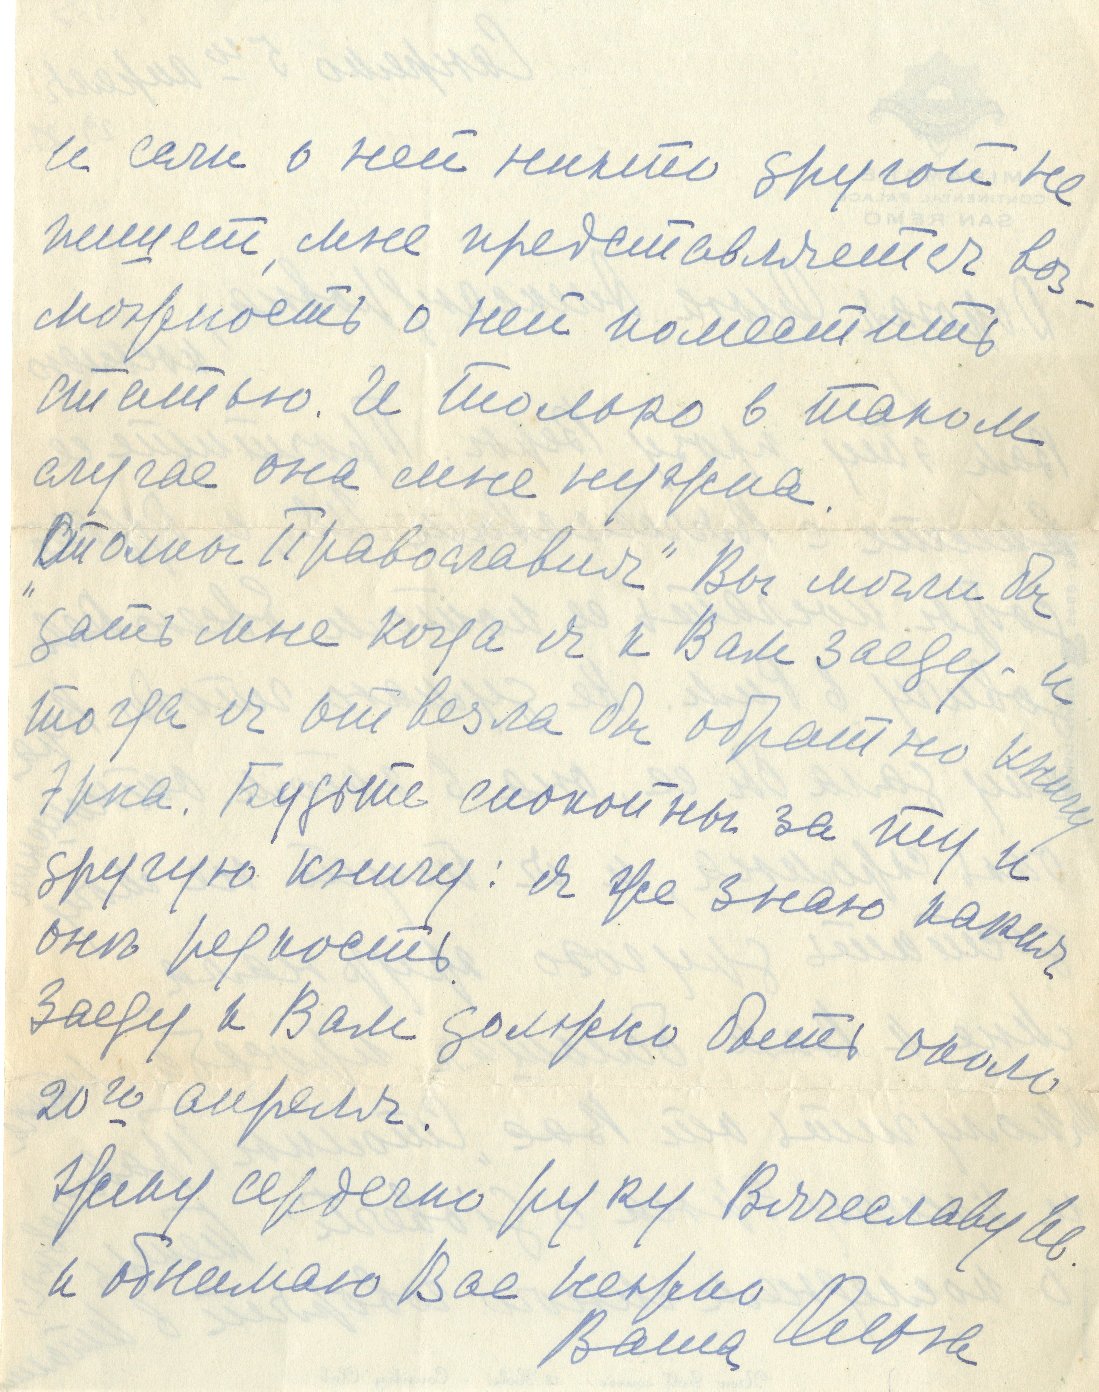 и если о ней никто другой не
пишет, мне представляется воз-
можность о ней поместить
статью. И только в таком
случае она мне нужна.
"Столпы Православия" Вы могли бы
дать мне когда я к Вам заеду - и
тогда я отвезла бы обратно книгу
Эрна. Будьте спокойны за ту и
другую книгу: я же знаю какия
онѣ редкость.
Заеду к Вам должно быть около
20го апреля.
Жму сердечно руку Вячеславу Ив.
и обнимаю Вас нежно
Ваша Ольга